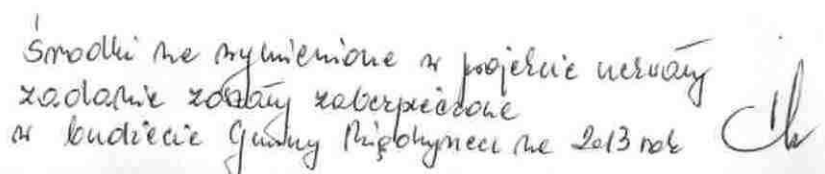 Środki na wymienione w projekcie uchwały
zadanie zostały zabezpieczone
w budżecie Gminy Międzyrzecz na 2013 rok